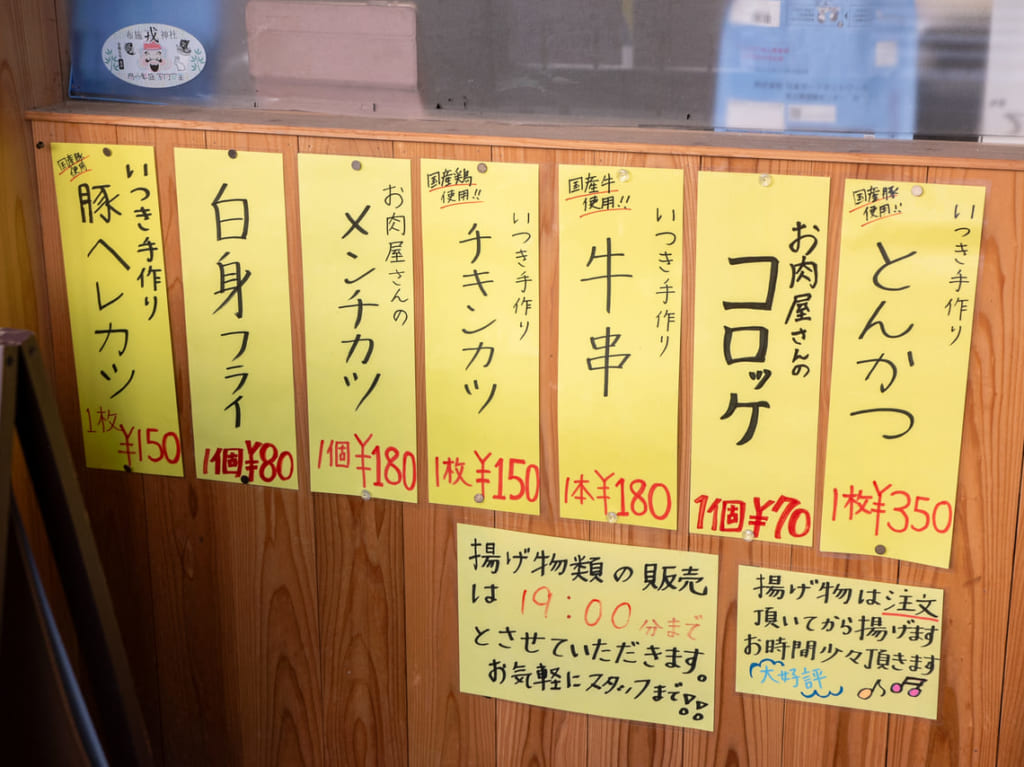 布施戎神社
国産豚使用!!
いつき手作り
とんかつ
1枚¥350
お肉屋さんの
コロッケ
1個¥70
国産牛使用!!
いつき手作り
牛串
1本¥180
国産鶏使用!!
いつき手作り
チキンカツ
1枚¥150
お肉屋さんの
メンチカツ
1個¥180
白身フライ
1個¥80
国産豚使用
いつき手作り
豚ヘレカツ
1枚¥150
揚げ物類の販売
は 19:00分まで
とさせていただきます。
お気軽にスタッフまで!!
揚げ物は注文
頂いてから揚げます
お時間少々頂きます
大好評